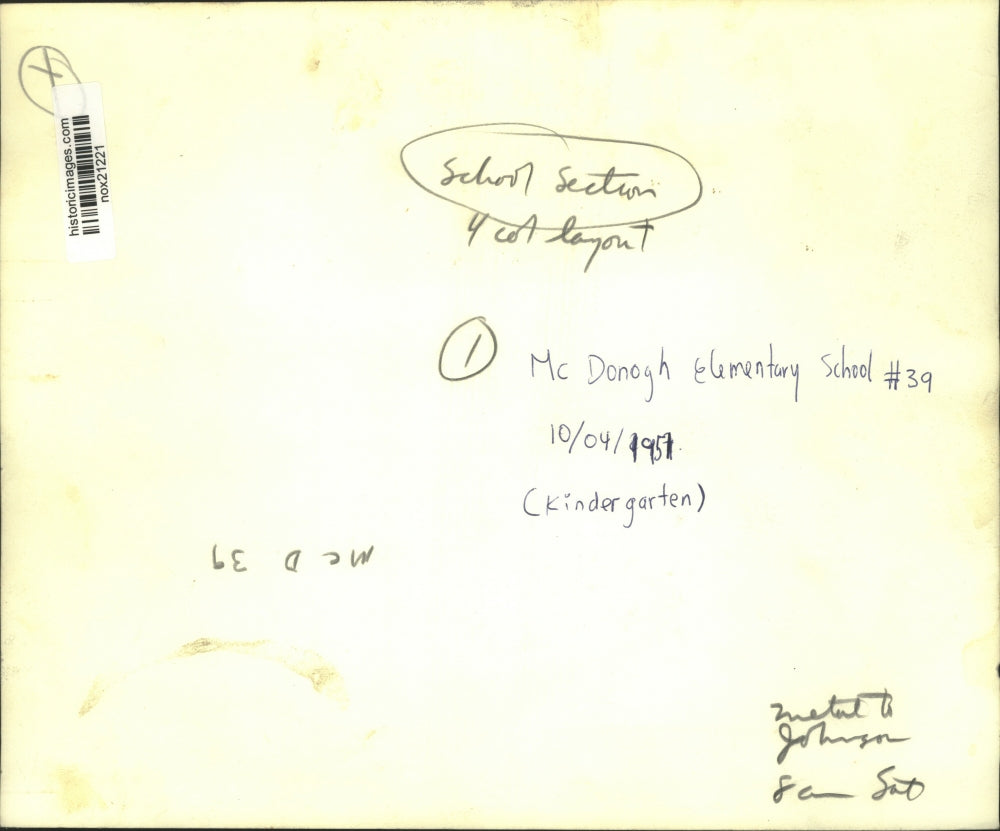 X
historicimages.com
nox21221
School Section
4 col layout
1
Mc Donogh Elementary School #39
10/04/1957
(Kindergarten)
Mc D 39
metal to
Johnson
8 am Sat